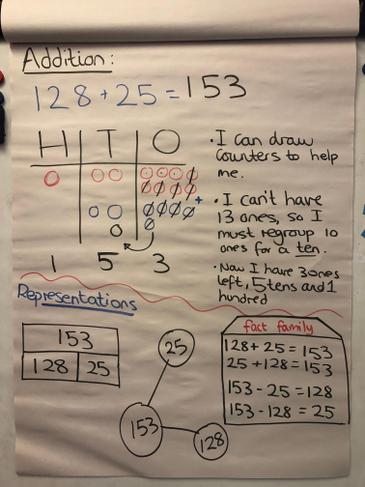 Addition:
128 + 25 = 153
H T O
1 5 3
• I can draw
counters to help
me.
• I can't have
13 ones, so I
must regroup 10
ones for a ten.
• Now I have 3 ones
left, 5 tens and 1
hundred
Representations
153
128 25
25
153
128
fact family
128 + 25 = 153
25 + 128 = 153
153 - 25 = 128
153 - 128 = 25